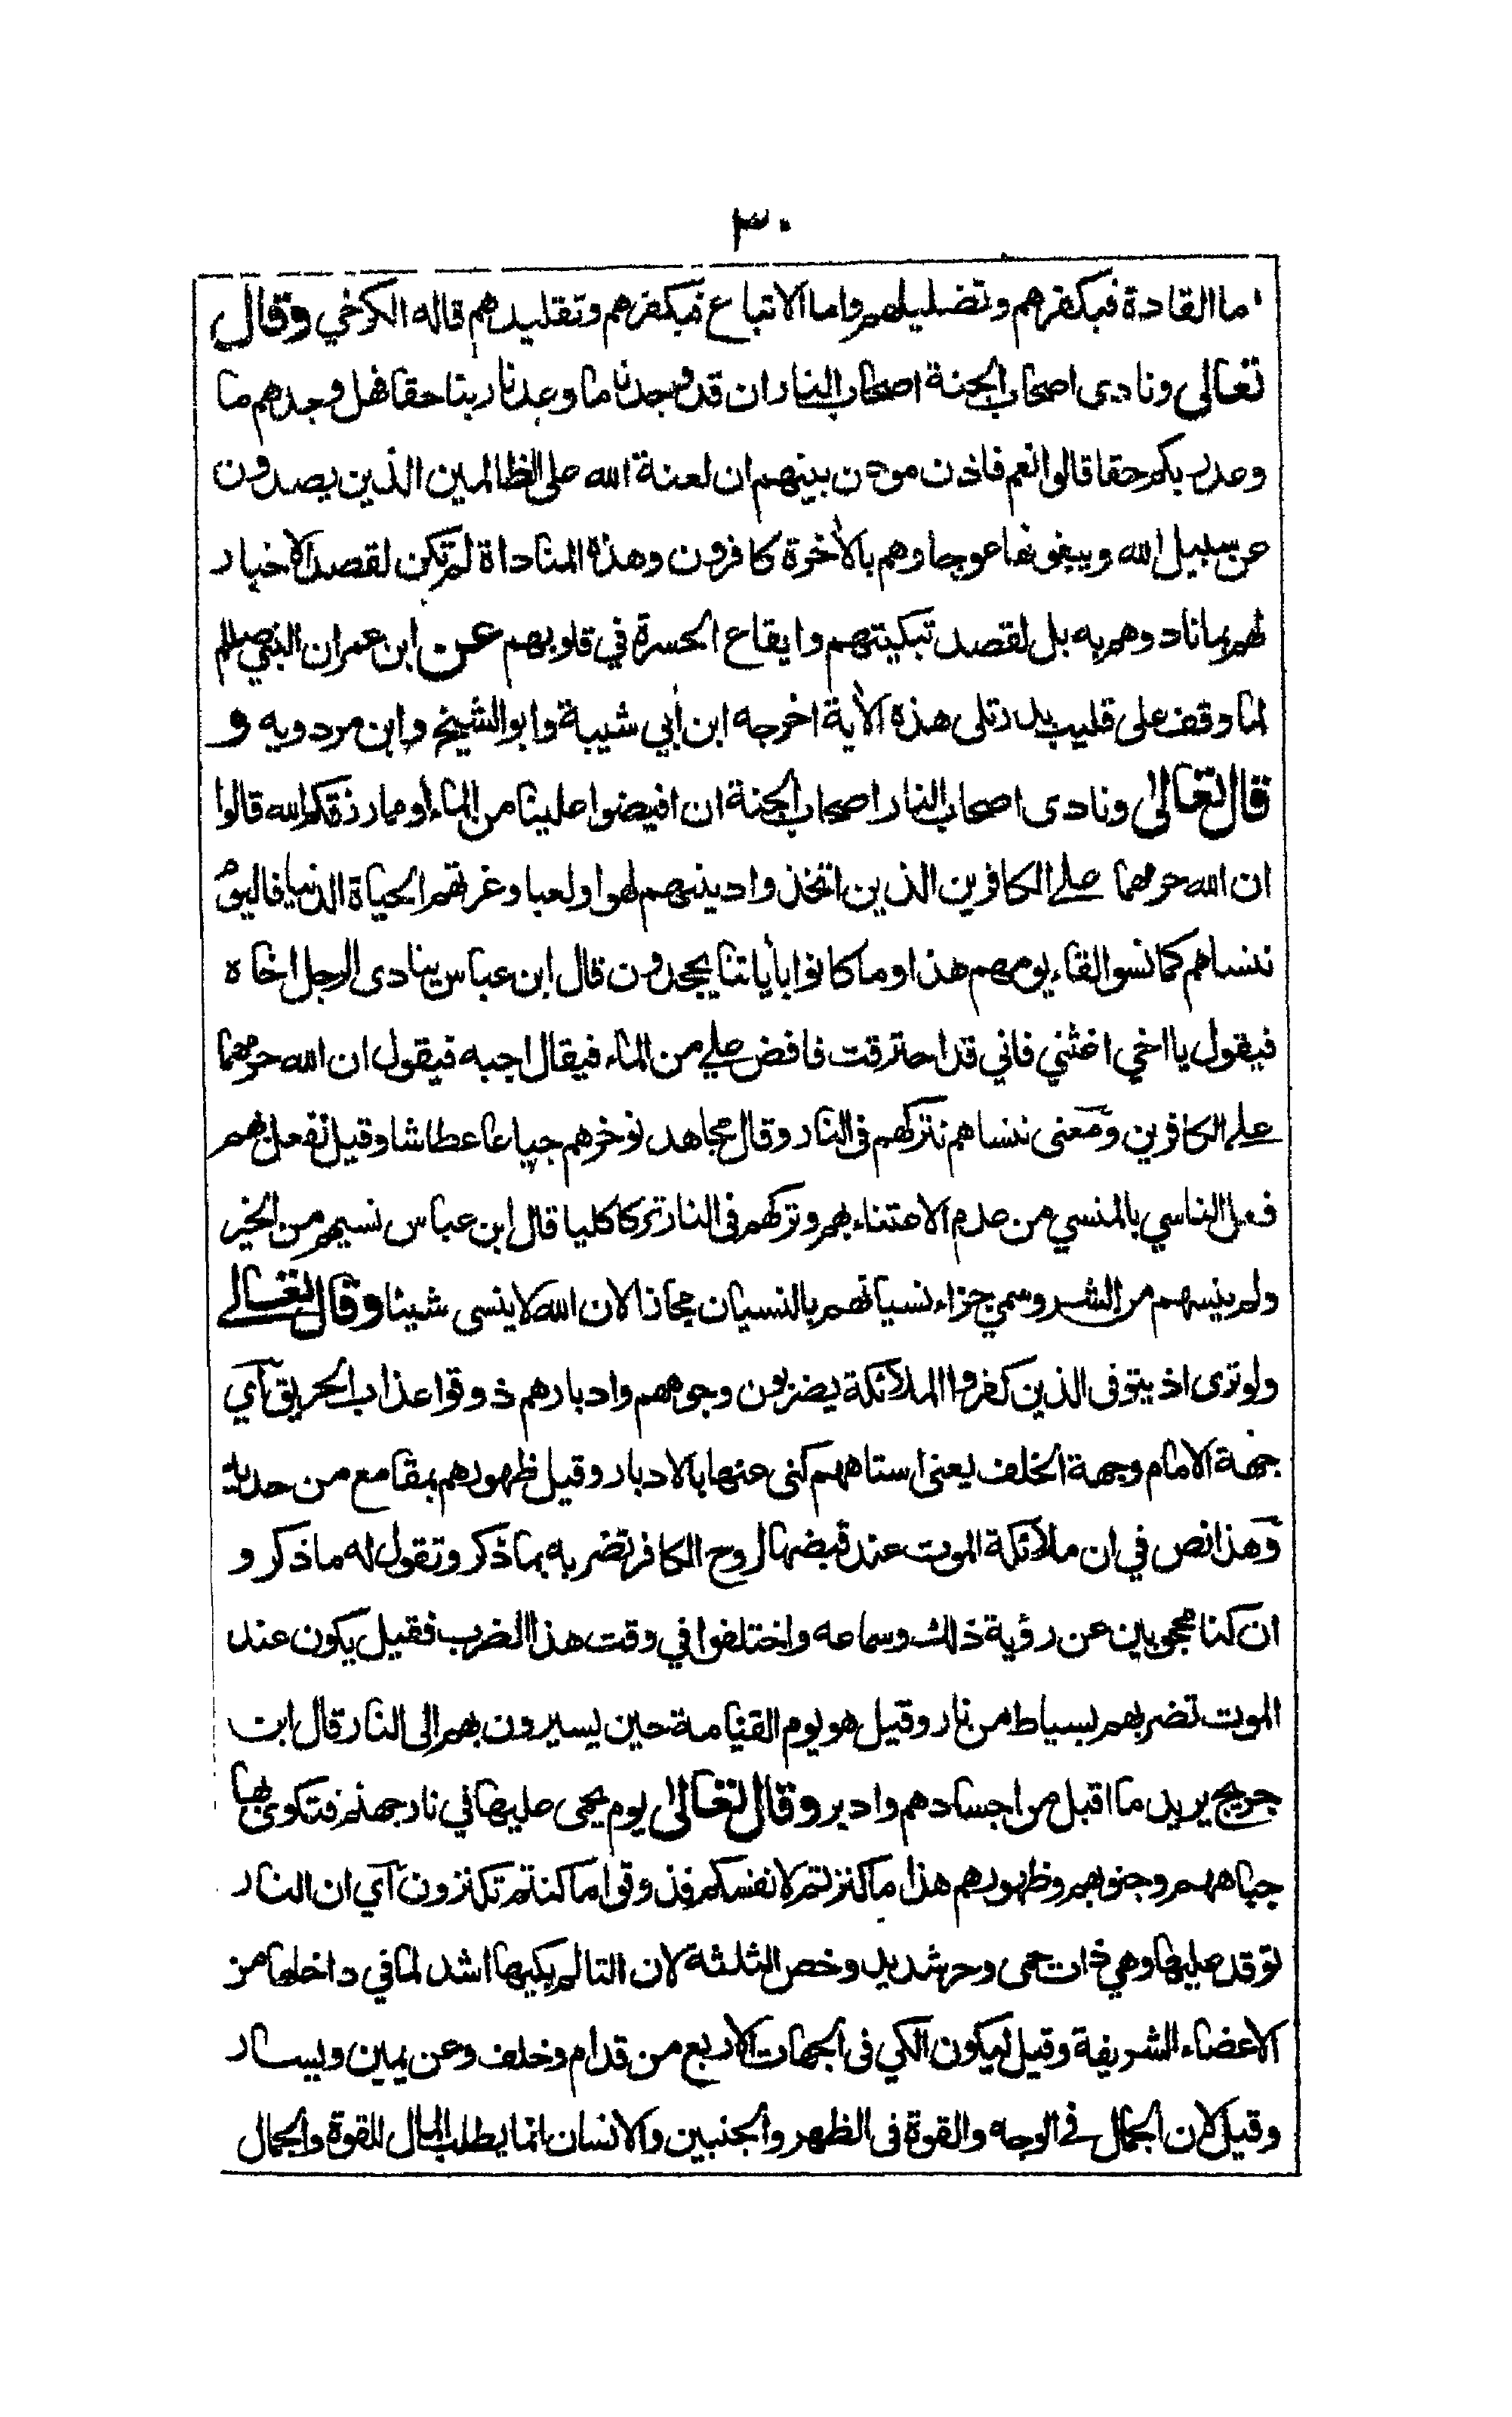 ٣٠
اما القادة فبكفرهم وتضليلهم واما الاتباع فبكفرهم وتقليدهم قاله الكرخي وقال
تعالى ونادى اصحاب الجنة اصحاب النار ان قد وجدنا ما وعدنا ربنا حقا فهل وجدتم ما
وعد ربكم حقا قالوا نعم فاذن موذن بينهم ان لعنة الله على الظالمين الذين يصدون
عن سبيل الله ويبغونها عوجا وهم بالأخرة كافرون وهذه المناداة لم تكن لقصد الاخبار
لهم بما نادوهم به بل لقصد تبكيتهم وايقاع الحسرة في قلوبهم عن ابن عمر ان النبي صللم
لما وقف على قليب بدر تلى هذه الأية اخرجه ابن أبي شيبة وابو الشيخ وابن مردويه و
قال تعالى ونادى اصحاب النار اصحاب الجنة ان افيضوا علينا من الماء أو مما رزقكم الله قالوا
ان الله حرمهما على الكافرين الذين اتخذوا دينهم لهوا ولعبا وغرتهم الحياة الدنيا فاليوم
ننساهم كما نسوا لقاء يومهم هذا وما كانوا بأياتنا يجحدون قال ابن عباس ينادى الرجل اخاه
فيقول يا اخي اغثني فاني قد احترقت فافض علي من الماء فيقال اجبه فيقول ان الله حرمهما
على الكافرين ومعنى ننساهم نتركهم فى النار وقال مجاهد نوخرهم جياعا عطاشا وقيل نفعل بهم
فعل الناسي بالمنسي من عدم الاعتناء بهم وتركهم فى النار تركا كليا قال ابن عباس نسيهم من الخير
ولم ينسهم من الشر وسمي جزاء نسيانهم بالنسيان مجازا لان الله لا ينسى شيئا وقال تعالى
ولو ترى اذ يتوفى الذين كفروا الملآئكة يضربون وجوههم وادبارهم ذوقوا عذاب الحريق آي
جهة الامام وجهة الخلف يعنى استاههم كنى عنها بالادبار وقيل ظهورهم بمقامع من حديد
وهذا نص في ان ملآئكة الموت عند قبضها لروح الكافر تضربه بما ذكر وتقول له ما ذكر و
ان كنا محجوبين عن رؤية ذلك وسماعه واختلفوا في وقت هذا الضرب فقيل يكون عند
الموت تضربهم بسياط من نار وقيل هو يوم القيامة حين يسيرون بهم الى النار قال ابن
جريج يريد ما اقبل من اجسادهم وادبر وقال تعالى يوم يحمى عليها في نار جهنم فتكوى بها
جباههم وجنوبهم وظهورهم هذا ما كنزتم لانفسكم فذوقوا ما كنتم تكنزون آي ان النار
توقد عليها وهي ذات حمى وحر شديد وخص الثلثة لان التالم بكيها اشد لما في داخلها من
الاعضاء الشريفة وقيل ليكون الكي فى الجهات الاربع من قدام وخلف وعن يمين ويسار
وقيل لان الجمال في الوجه والقوة فى الظهر والجنبين والانسان انما يطلب المال للقوة والجمال